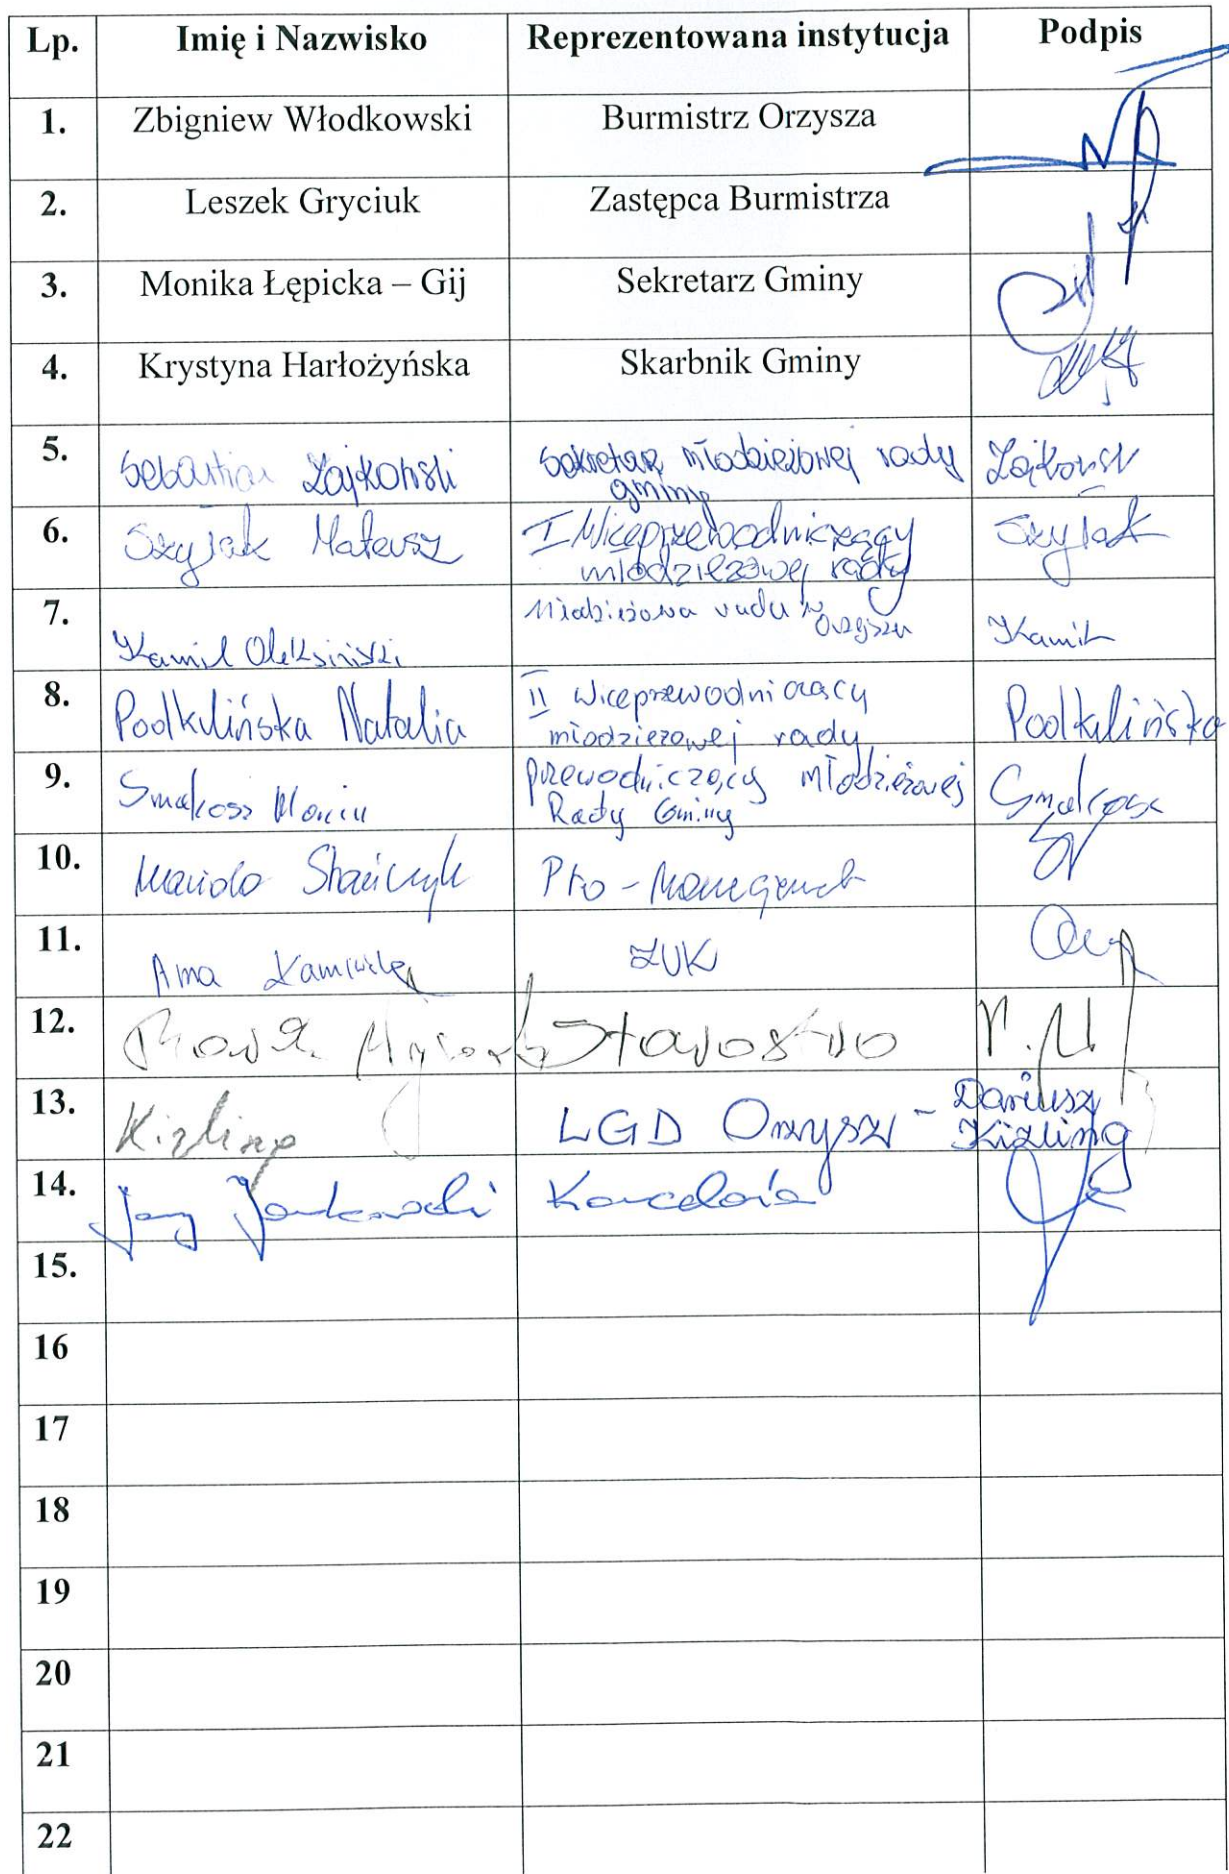 Lp. Imię i Nazwisko Reprezentowana instytucja Podpis
1. Zbigniew Włodkowski Burmistrz Orzysza
2. Leszek Gryciuk Zastępca Burmistrza
3. Monika Łępicka – Gij Sekretarz Gminy
4. Krystyna Harłożyńska Skarbnik Gminy
5. Sebastian Zajkowski Sekretarz młodzieżowej rady Zajkowski
gminy
6. Szyjak Mateusz I Wiceprzewodniczący Szyjak
młodzieżowej rady
7. Kamil Oleksiński Młodzieżowa rada w Orzyszu Kamil
8. Podkulińska Natalia II Wiceprzewodniczący Podkulińska
młodzieżowej rady
9. Smakosz Marcin przewodniczący młodzieżowej Smakosz
Rady Gminy
10. Mariola Stańczyk
11. Anna ZUK
12. Starostwo
13. Kizling LGD Orzysz - Dariusz
Kizling
14. Jerzy Jankowski
15.
16
17
18
19
20
21
22